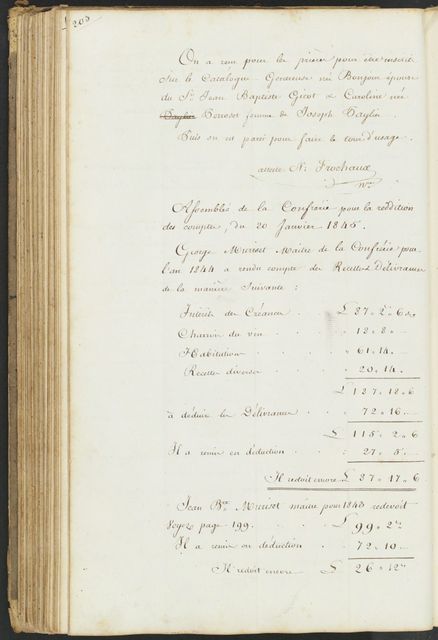 203
On a reçu pour les prières pour être inscrit
sur le Catalogue Genereuse née Bonjour épouse
du Sr. Jean Baptiste Gicot & Caroline née
Perroset femme de Joseph Taylin.
Puis on est passé pour faire le tour d'usage.
atteste N. Frochaux
Assemblée de la Confrérie pour la reddition
des comptes, du 20 Janvier 1845.
George Muriset Maitre de la Confrérie pour
l'an 1844 a rendu compte des Recettes & Délivrances
de la manière Suivante :
Intérêts des Créances . . £ 37 " 2 " 6
Charroi du vin . . . " 18 " 8 "
Habitation . . . " 61 " 14 "
Recettes diverses . . . " 20 " 14 "
£ 137 " 18 " 6
à déduire les Délivrances . . " 72 " 16 "
£ 115 " 2 " 6
Il a remis en déduction . . " 27 " 5 "
Il redoit encore £ 87 " 17 " 6
Jean Bte. Muriset maitre pour 1843 redevoit
Voyez page 199. . . . £ 99 " 2
Il a remis en déduction . . " 72 " 10
Il redoit encore £ 26 " 12